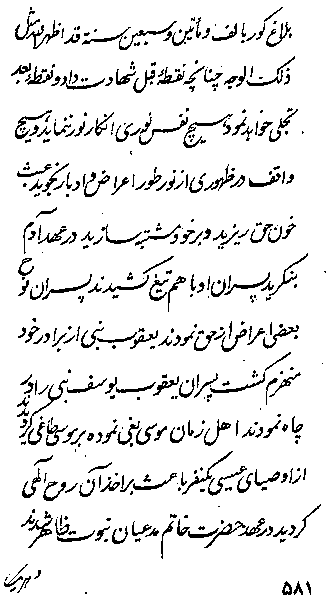 بلاغ کور بالف و مأتین و سبعین سنة قد اظهر الله مثل
ذلک الوجه چنانچه نقطهٔ قبل شهادت داد و نقطه بعد
تجلی خواهد نمود هیچ نفس نوری انکار نور ننماید و هیچ
واقف در ظهوری از نور طور اعراض و ادبار نجوید عبث
خون حق نریزید و بر خود مشتبه نسازید در عهد آدم
بنگرید پسران او با هم تیغ کشیدند پسران نوح
بعضی اعراض از حق نمودند یعقوب نبی از برادر خود
منهزم گشت پسران یعقوب یوسف نبی را در
چاه نمودند اهل زمان موسی بغی نموده بر موسی طاغی گردیدند
از اوصیای عیسی یکنفر باعث بر اخذ آن روح الهی
گردید در عهد حضرت خاتم مدعیان نبوت ظاهر شدند
و هر یک
۵۸۱